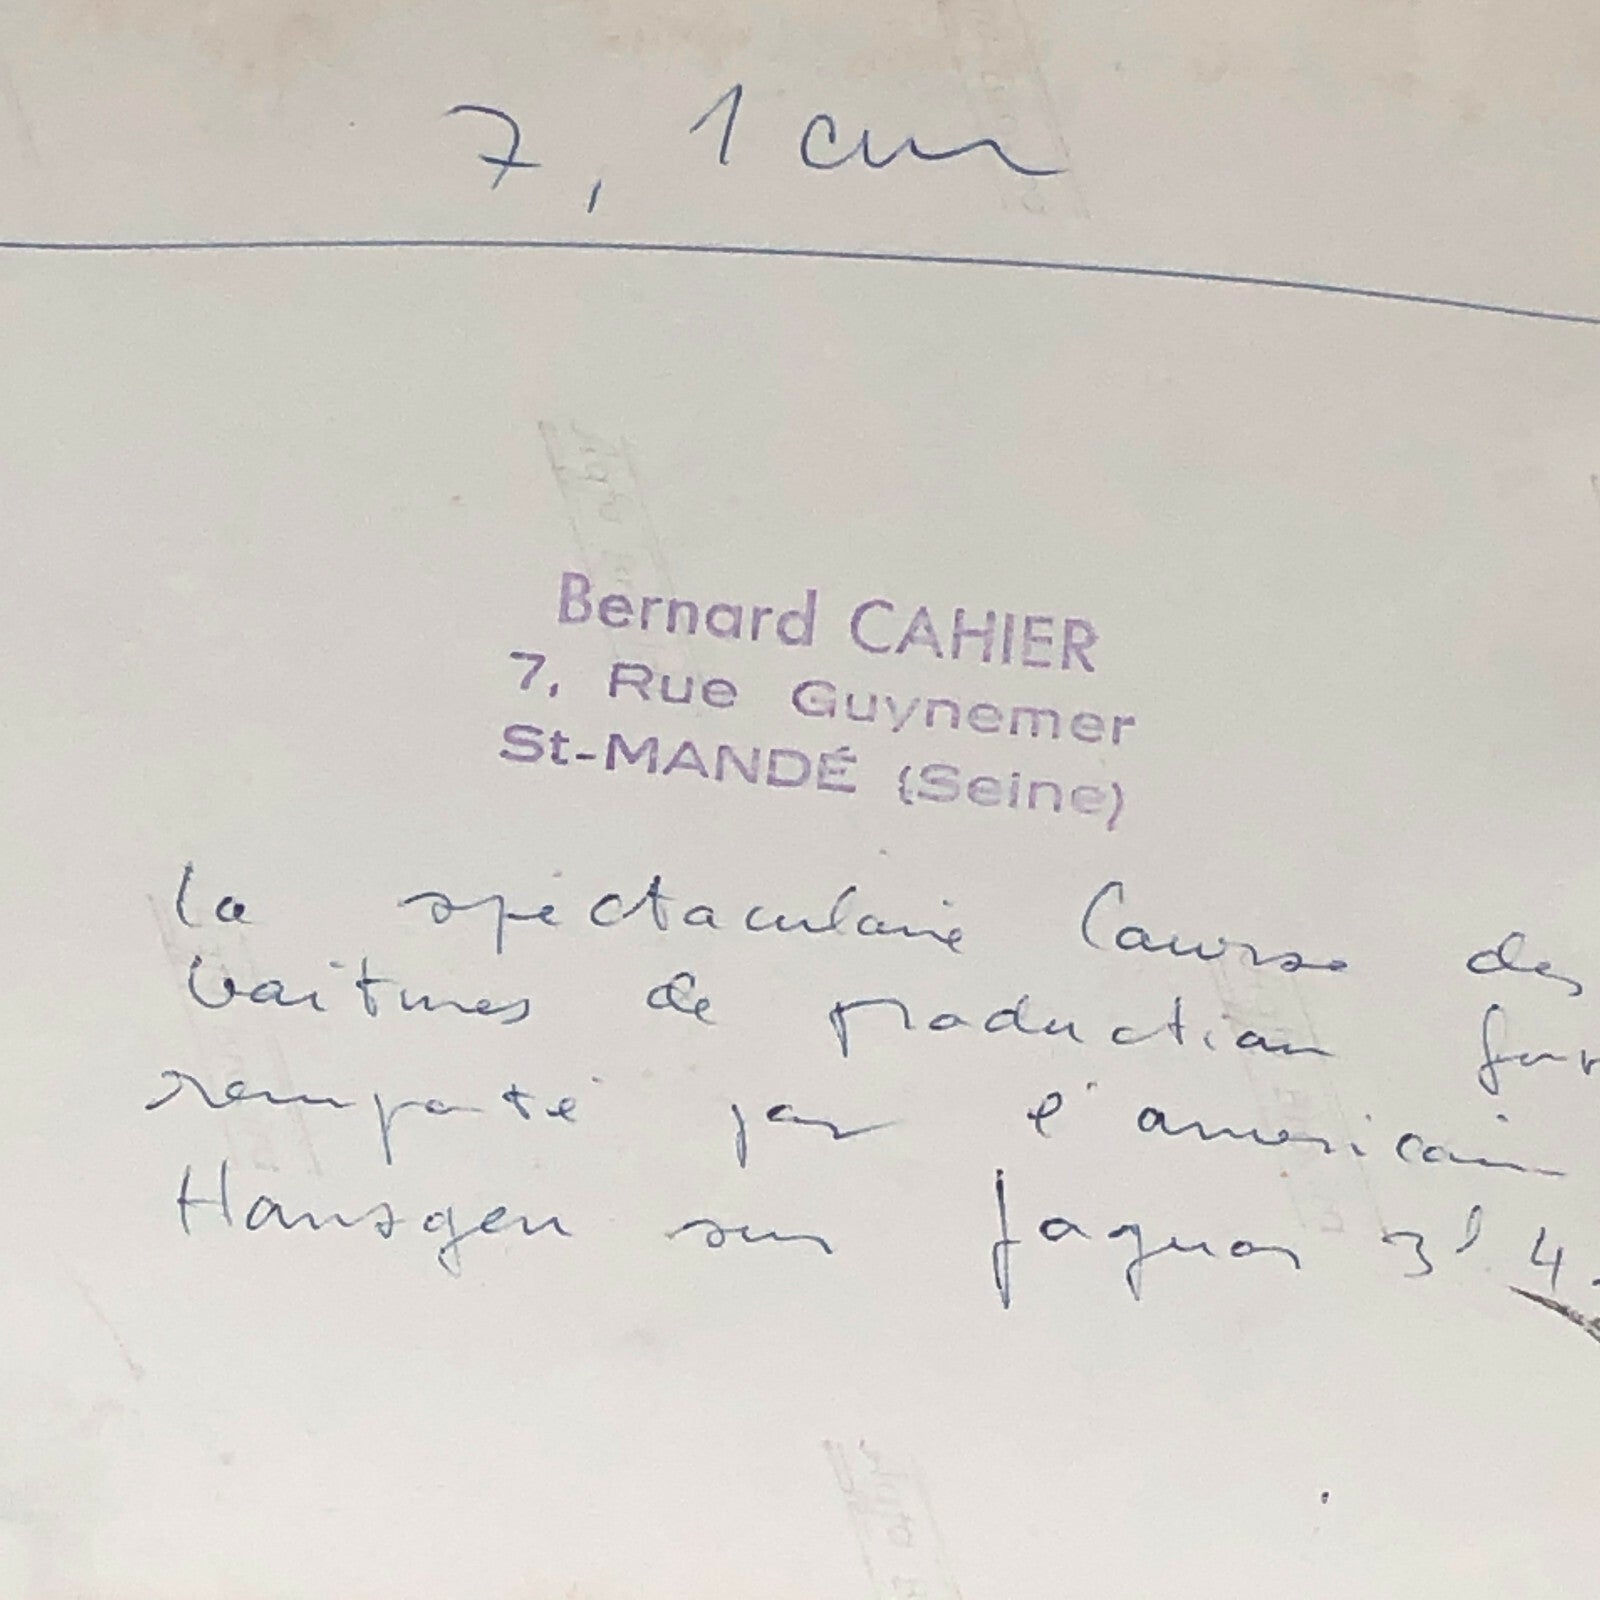 7, 1 cm
Bernard CAHIER
7, Rue Guynemer
St-MANDÉ (Seine)
La spectaculaire Course des
Voitures de production fut
remporté par l'américain
Hansgen sur Jaguar 3l 4.